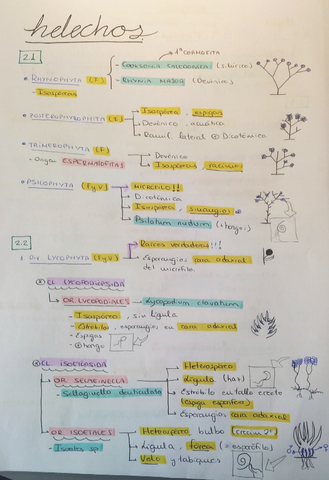 helechos
2.1
1ª CORMOFITA
• RHYNIOPHYTA (F)
COOKSONIA CALEDONICA (silúrico)
RHYNIA MAJOR (Devónico)
- Isospóreos
• ZOSTEROPHYLLOPHYTA (F)
Isospóreos, espigas
Devónico, acuática
Ramif. lateral Dicotómica
• TRIMEROPHYTA (F)
- Origen ESPERMAFITAS
Devónico
Isospóreos, racimos
• PSILOPHYTA (F y V)
MICROFILO!!
Dicotómica
Isospóreos, sinangios
Psilotum nudum (+hongo)
2.2
1. DIV. LYCOPHYTA (F y V)
Raíces verdaderas!!!
Esporangios cara adaxial
del microfilo
CL LYCOPODIOPSIDA
OR LYCOPODIALES
Lycopodium clavatum
- Isospóreos, sin lígula
- Estróbilo, esporangios en cara adaxial
- Espigas
hongo
CL ISOETOPSIDA
OR SELAGINELLA
- Selaginella denticulata
Heterospóreo
Lígula (hay)
Estróbilo en tallo erecto
(espiga esporífera)
Esporangios cara adaxial
OR ISOETALES
Isoetes sp
Heterospóreos, bulbo (crecim. 2º)
Lígula, fóvea (= esporófilo)
Velo y tabiques